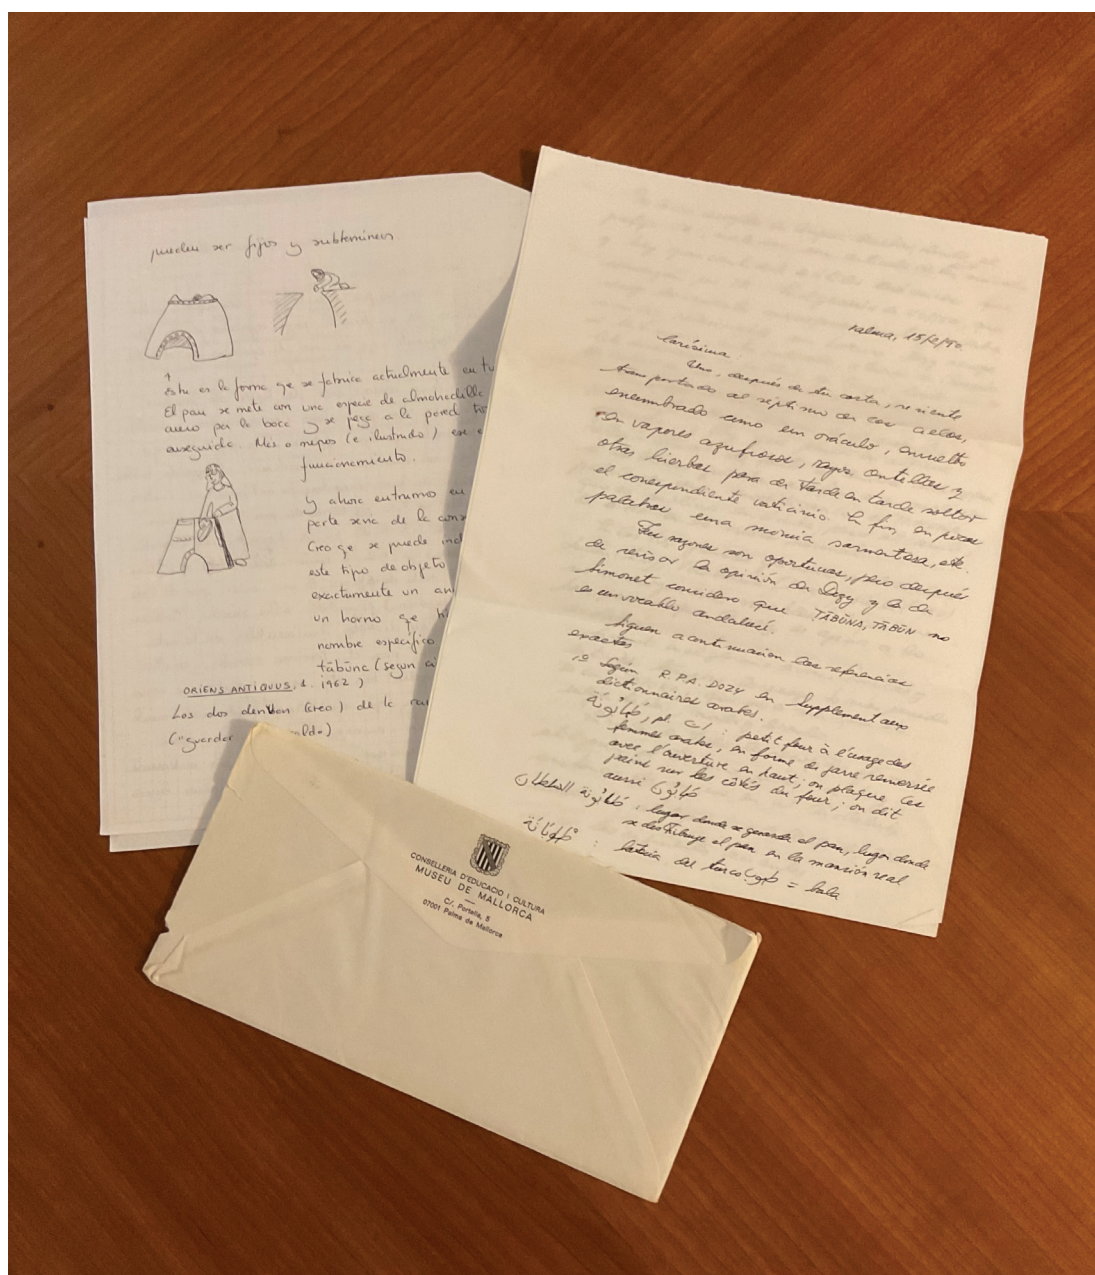 pueden ser fijos y subterráneos
↑
Esta es la forma qe se fabrica actualmente en tu
El pan se mete con una especie de almohadilla
por la boca y se pega a la pared
enseguida. Más o menos (e ilustrado) ese
funcionamiento.
y ahora entramos en
parte seria de la
Creo qe se puede
este tipo de objeto
exactamente un
un horno qe h
nombre específico
tābūna (según
ORIENS ANTIQUUS, 1. 1962)
Los dos derivan (creo) de la
("guardar
Palma, 15/2/90.
Carísima
Uno, después de tu carta, se siente
transportado al séptimo de los cielos,
encumbrado como un oráculo, envuelto
en vapores azufrosos, rayos, centellas y
otras hierbas para de tarde en tarde soltar
el correspondiente vaticinio. En fin, en pocas
palabras una momia sarmentosa, etc.
Tus razones son oportunas, pero después
de revisar la opinión de Dozy y la de
Simonet considero que TĀBŪNA, TĀBŪN no
es un vocablo andalusí.
Siguen a continuación las referencias
exactas
1º Según R.P.A. DOZY en Supplement aux
dictionnaires arabes.
طَابُونَة, pl. ات : petit four à l'usage des
femmes arabes, en forme de jarre renversée
avec l'ouverture en haut; on plaque les
pains sur les côtés du four; on dit
aussi طَابُون
طَابُونة السلطان : lugar donde se guarda el pan, lugar donde
se distribuye el pan en la mansión real
: batería del turco = bala
CONSELLERIA D'EDUCACIO I CULTURA
MUSEU DE MALLORCA
C/. Portella, 5
07001 Palma de Mallorca